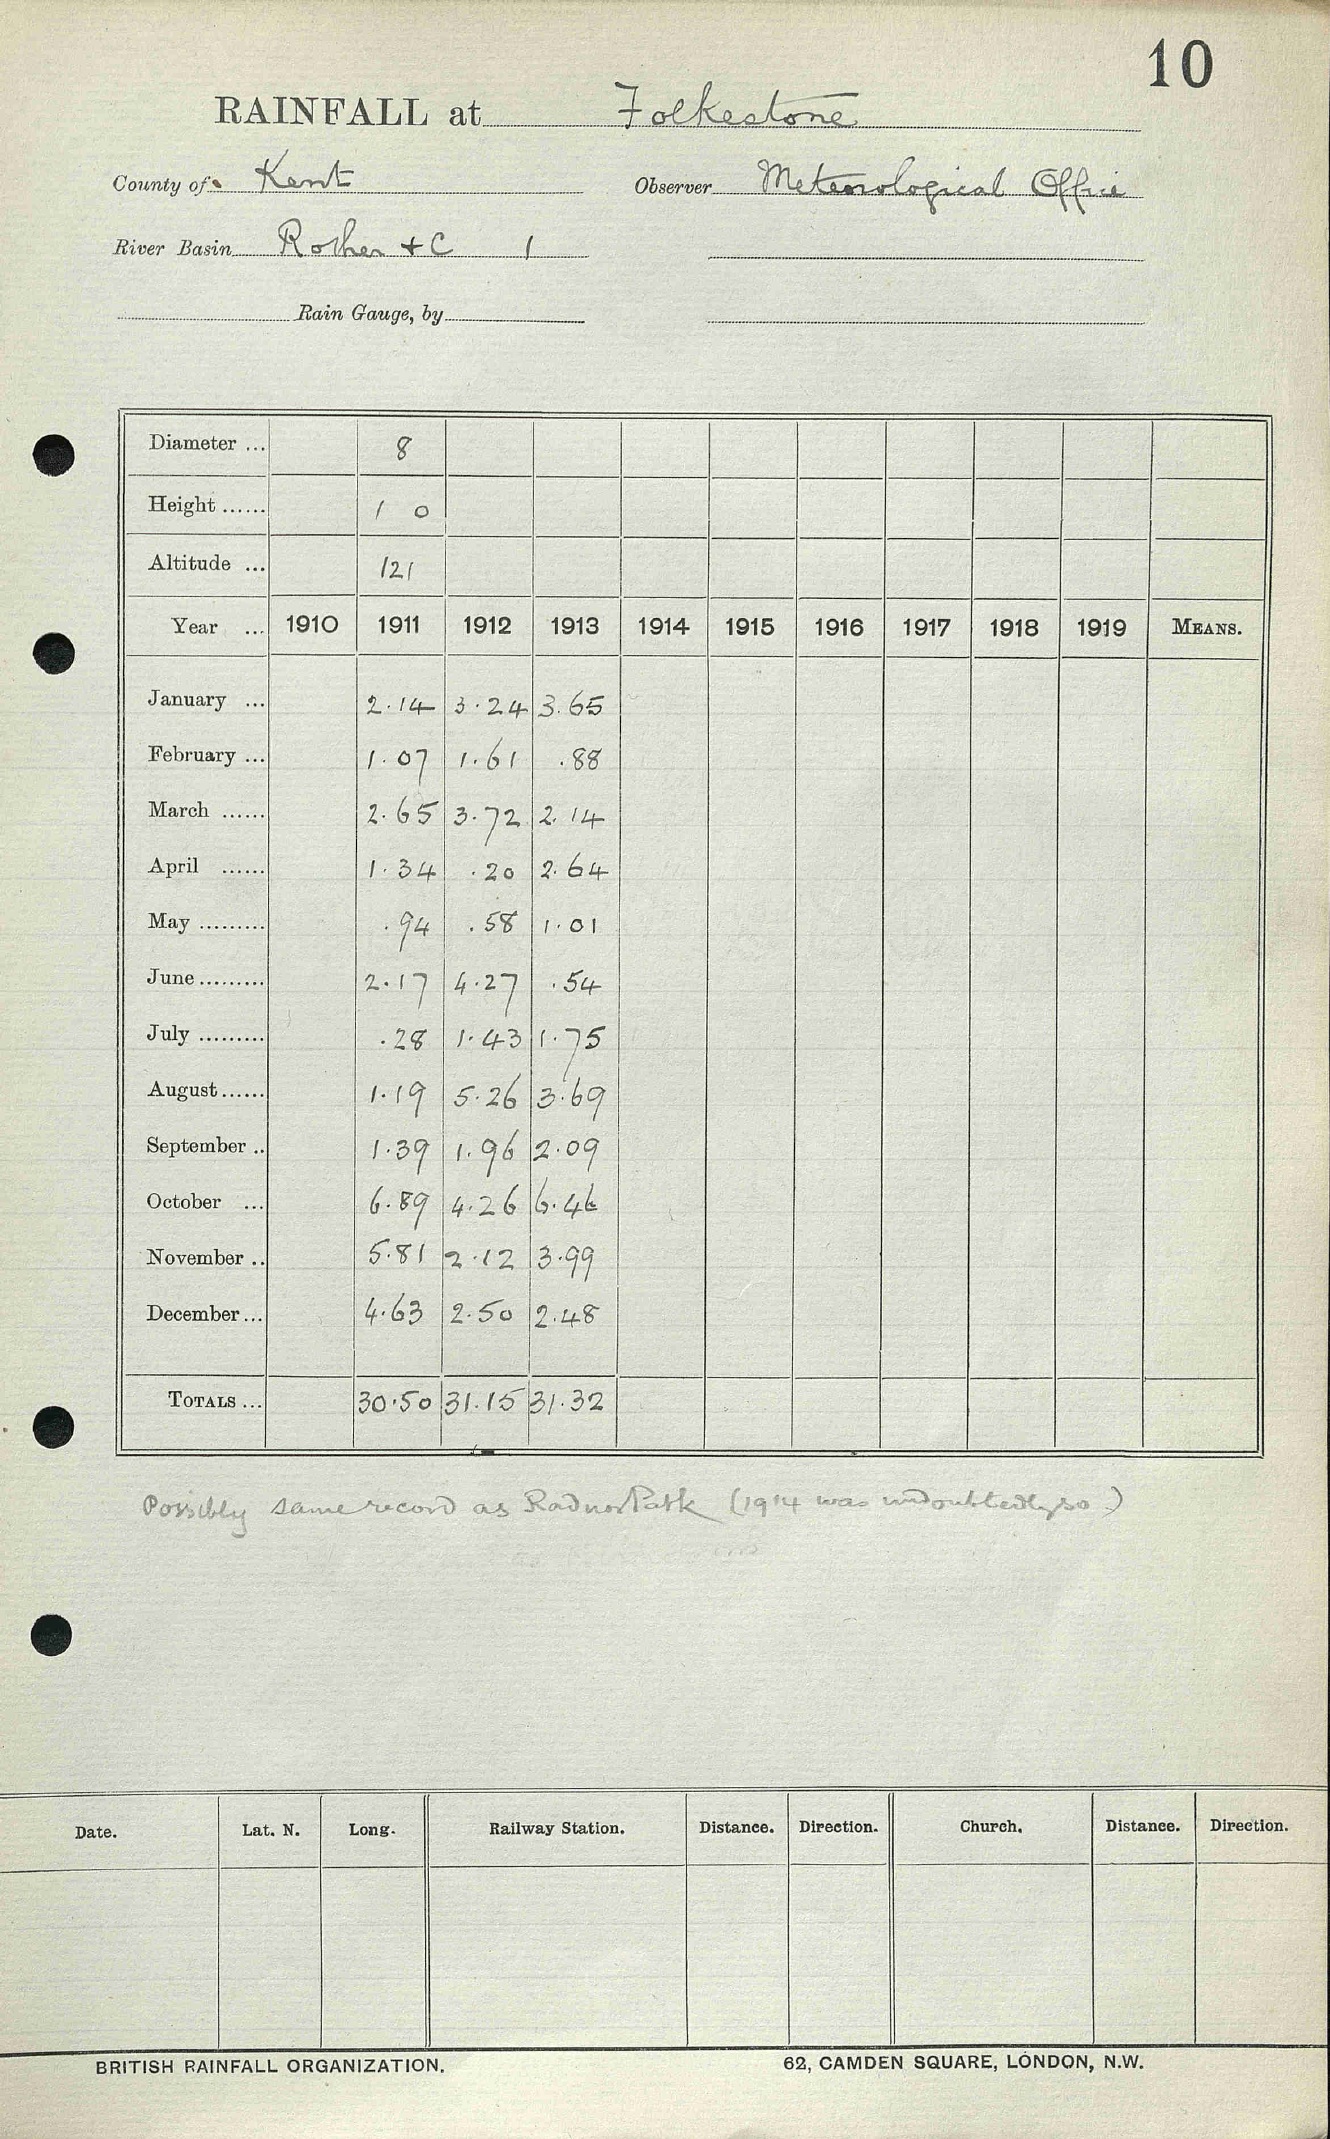 10
RAINFALL at Folkestone
County of Kent Observer Meteorological Office
River Basin Rother &c 1
Rain Gauge, by
Diameter ... 8
Height ...... 1 0
Altitude ... 121
Year ... 1910 1911 1912 1913 1914 1915 1916 1917 1918 1919 MEANS.
January ... 2.14 3.24 3.65
February ... 1.07 1.61 .88
March ...... 2.65 3.72 2.14
April ...... 1.34 .20 2.64
May ......... .94 .58 1.01
June ......... 2.17 4.27 .54
July ......... .28 1.43 1.75
August ...... 1.19 5.26 3.69
September .. 1.39 1.96 2.09
October ... 6.89 4.26 6.46
November .. 5.81 2.12 3.99
December ... 4.63 2.50 2.48
TOTALS ... 30.50 31.15 31.32
Possibly same record as Radnor Park (1914 was undoubtedly so)
Date. Lat. N. Long. Railway Station. Distance. Direction. Church. Distance. Direction.
BRITISH RAINFALL ORGANIZATION. 62, CAMDEN SQUARE, LONDON, N.W.